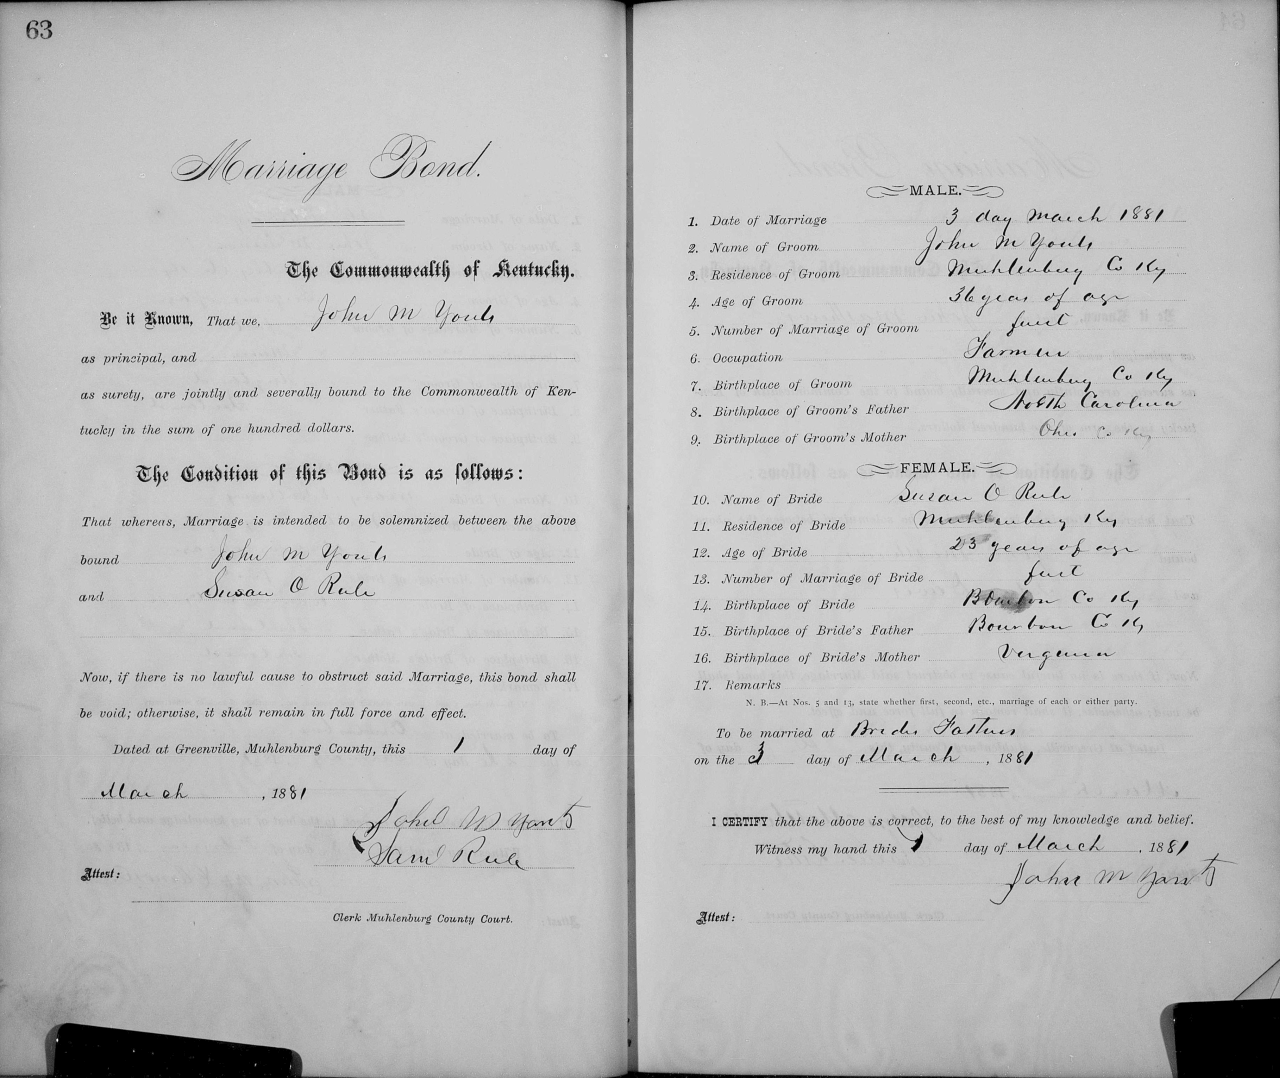 63
Marriage Bond.
The Commonwealth of Kentucky.
Be it Known, That we, John M Yonts
as principal, and
as surety, are jointly and severally bound to the Commonwealth of Ken-
tucky in the sum of one hundred dollars.
The Condition of this Bond is as follows:
That whereas, Marriage is intended to be solemnized between the above
bound John M Yonts
and Susan O Rule
Now, if there is no lawful cause to obstruct said Marriage, this bond shall
be void; otherwise, it shall remain in full force and effect.
Dated at Greenville, Muhlenburg County, this 1 day of
March, 1881
John M Yonts
Sam Rule
Attest:
Clerk Muhlenburg County Court.
MALE.
1. Date of Marriage 3 day March 1881
2. Name of Groom John M Yonts
3. Residence of Groom Muhlenburg Co Ky
4. Age of Groom 36 years of age
5. Number of Marriage of Groom first
6. Occupation Farmer
7. Birthplace of Groom Muhlenburg Co Ky
8. Birthplace of Groom's Father North Carolina
9. Birthplace of Groom's Mother Ohio Co Ky
FEMALE.
10. Name of Bride Susan O Rule
11. Residence of Bride Muhlenburg Ky
12. Age of Bride 23 years of age
13. Number of Marriage of Bride first
14. Birthplace of Bride Bourbon Co Ky
15. Birthplace of Bride's Father Bourbon Co Ky
16. Birthplace of Bride's Mother Vergenia
17. Remarks
N. B.—At Nos. 5 and 13, state whether first, second, etc., marriage of each or either party.
To be married at Brides Fathers
on the 3 day of March, 1881
I CERTIFY that the above is correct, to the best of my knowledge and belief.
Witness my hand this 1 day of March, 1881
John M Yonts
Attest: